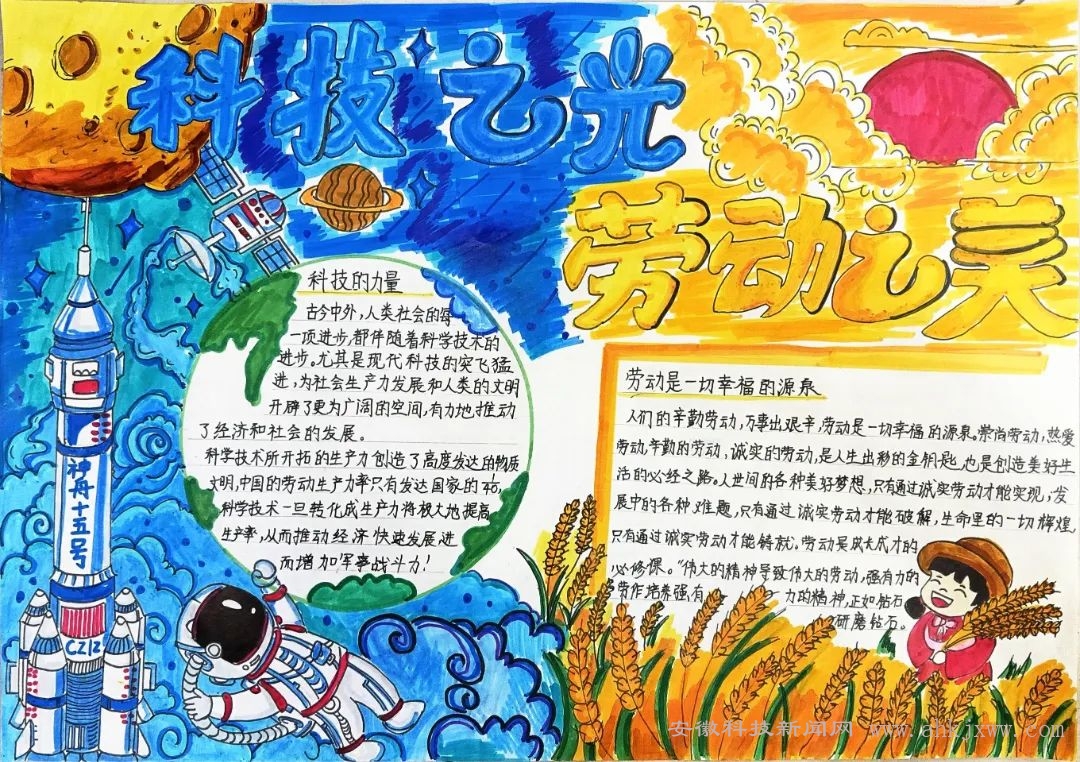 科技之光
劳动之美
科技的力量
古今中外,人类社会的每
一项进步,都伴随着科学技术的
进步。尤其是现代科技的突飞猛
进,为社会生产力发展和人类的文明
开辟了更为广阔的空间,有力地推动
了经济和社会的发展。
科学技术所开拓的生产力创造了高度发达的物质
文明,中国的劳动生产力率只有发达国家的
科学技术一旦转化成生产力将极大地提高
生产率,从而推动经济快速发展进
而增加军事战斗力!
劳动是一切幸福的源泉
人们的辛勤劳动,万事出艰辛,劳动是一切幸福的源泉。崇尚劳动,热爱
劳动,辛勤的劳动,诚实的劳动,是人生出彩的金钥匙,也是创造美好生
活的必经之路。人世间的各种美好梦想,只有通过诚实劳动才能实现;发
展中的各种难题,只有通过诚实劳动才能破解,生命里的一切辉煌,
只有通过诚实劳动才能铸就。劳动是成长成才的
必修课。“伟大的精神导致伟大的劳动,强有力的
劳作培养强有 力的精神,正如钻石
研磨钻石。
神舟十五号
CZ12
安徽科技新闻网 www.ahkjxww.com